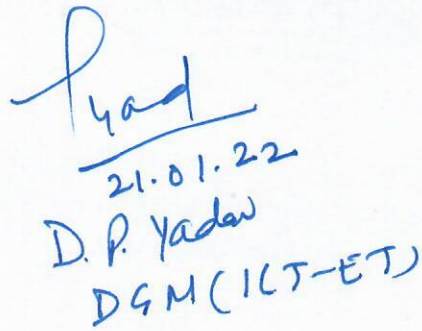 21.01.22
D. P. Yadav
DGM (ICT-ET)